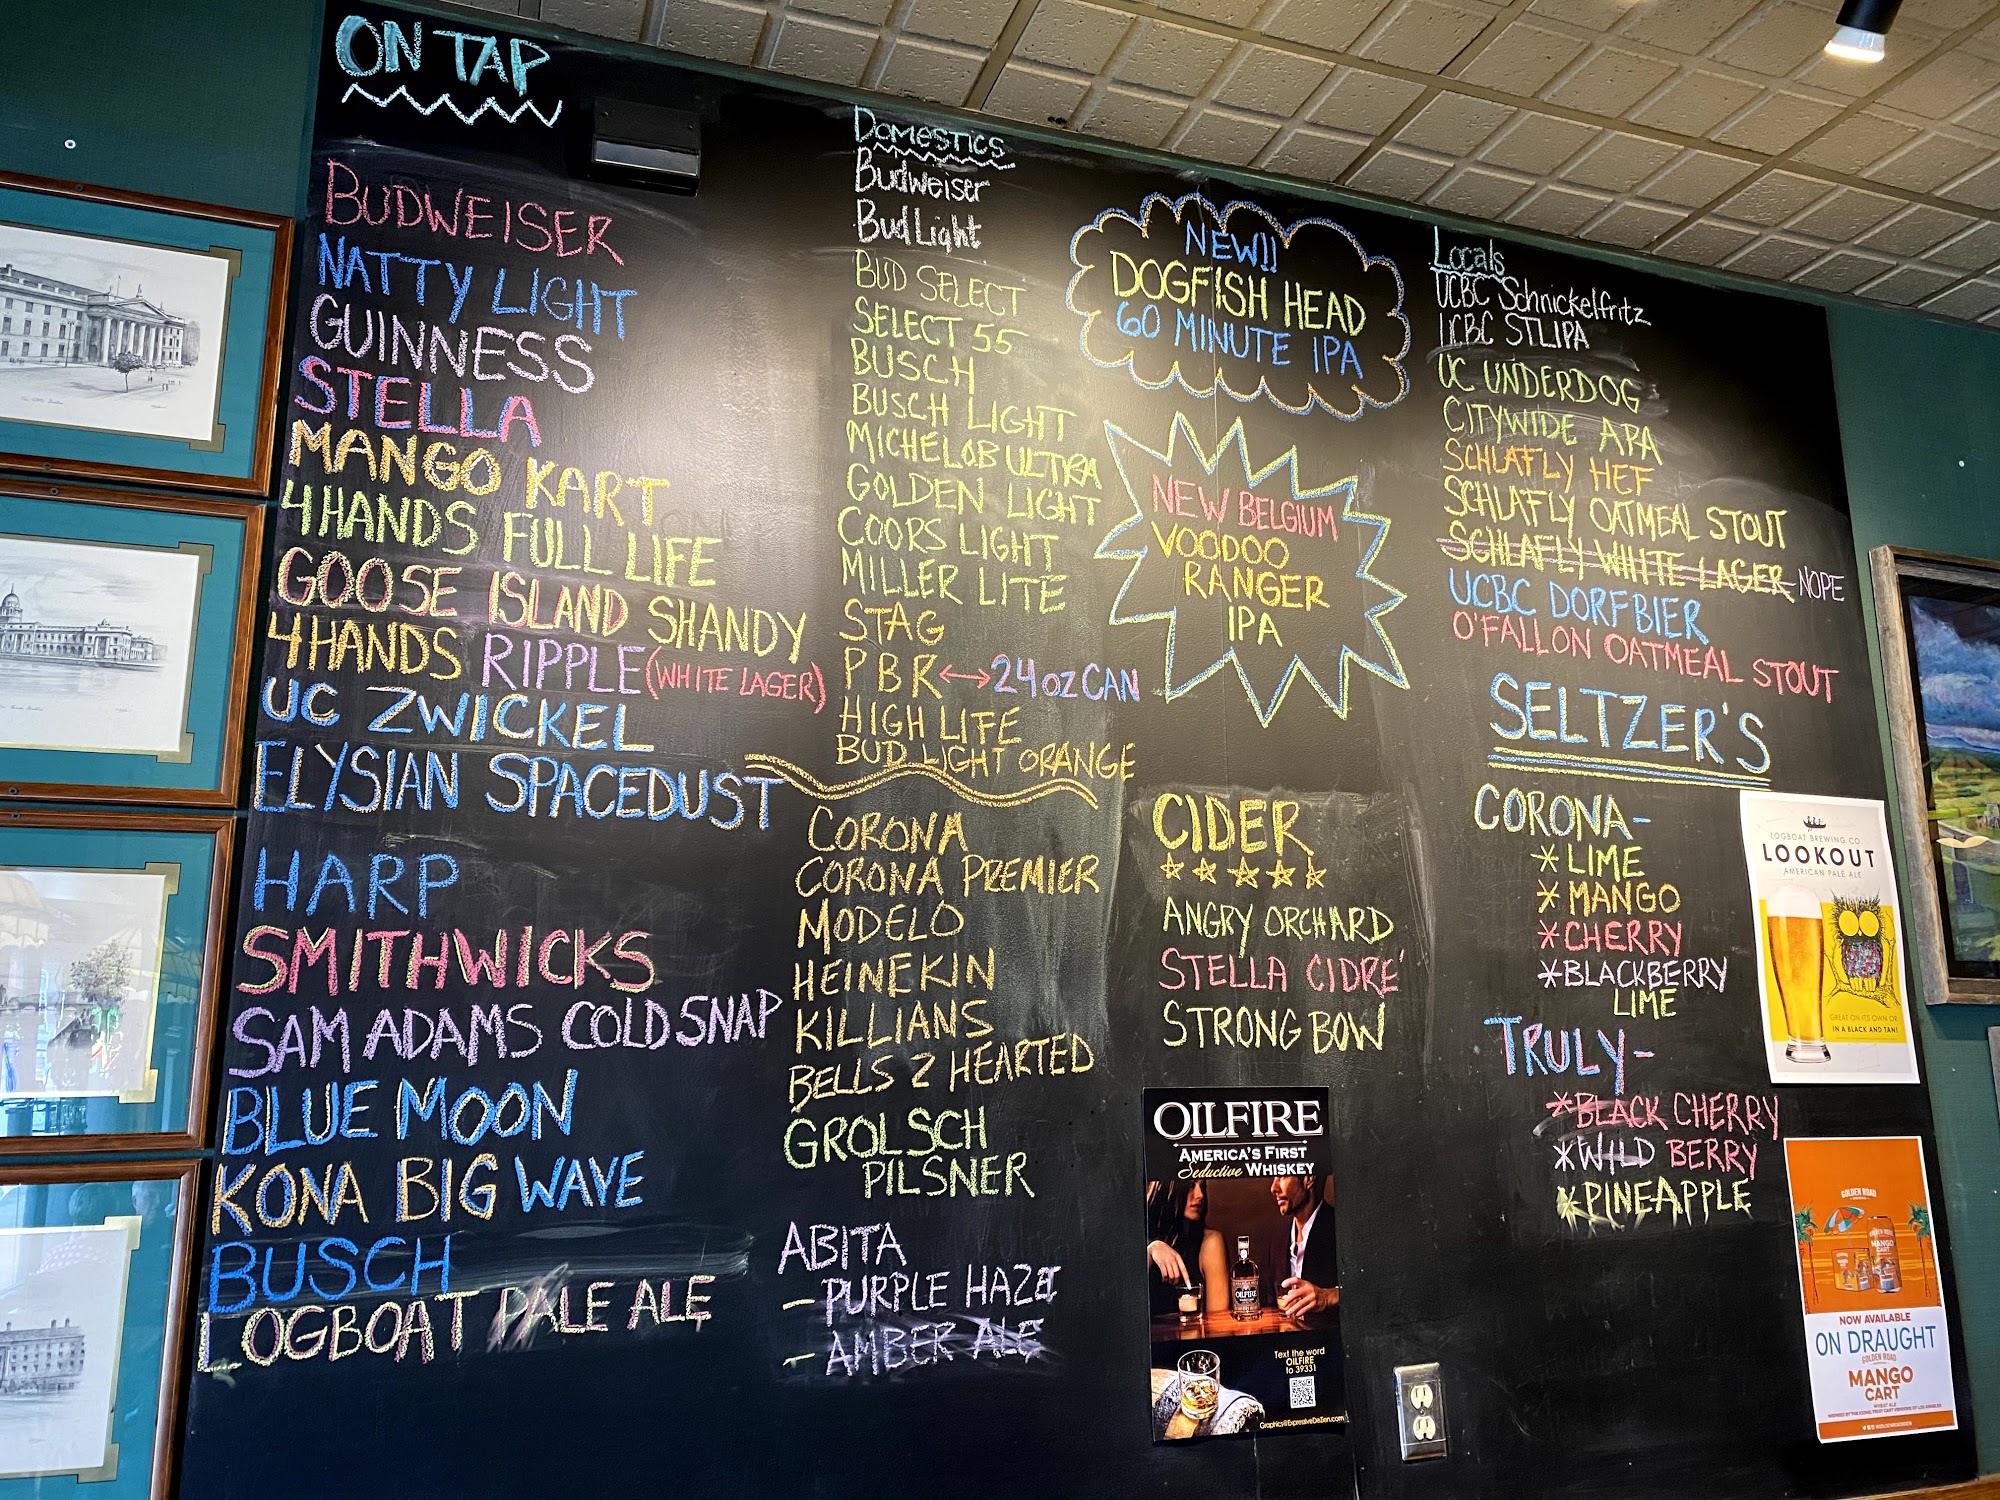 ON TAP
BUDWEISER
NATTY LIGHT
GUINNESS
STELLA
MANGO KART
4HANDS FULL LIFE
GOOSE ISLAND SHANDY
4HANDS RIPPLE (WHITE LAGER)
UC ZWICKEL
ELYSIAN SPACEDUST
HARP
SMITHWICKS
SAM ADAMS COLD SNAP
BLUE MOON
KONA BIG WAVE
BUSCH
LOGBOAT PALE ALE
DOMESTICS
Budweiser
Bud Light
BUD SELECT
SELECT 55
BUSCH
BUSCH LIGHT
MICHELOB ULTRA
GOLDEN LIGHT
COORS LIGHT
MILLER LITE
STAG
PBR ↔ 24oz CAN
HIGH LIFE
BUD LIGHT ORANGE
CORONA
CORONA PREMIER
MODELO
HEINEKIN
KILLIANS
BELLS 2 HEARTED
GROLSCH
PILSNER
ABITA
- PURPLE HAZE
- AMBER ALE
NEW!!
DOGFISH HEAD
60 MINUTE IPA
NEW BELGIUM
VOODOO
RANGER
IPA
CIDER
ANGRY ORCHARD
STELLA CIDRE'
STRONG BOW
OILFIRE
AMERICA'S FIRST
Seductive WHISKEY
OILFIRE
Text the word
OILFIRE
to 39331
Graphics@ExpressiveDeZen.com
Locals
UCBC Schnickelfritz
UCBC STLIPA
UC UNDERDOG
CITYWIDE APA
SCHLAFLY HEF
SCHLAFLY OATMEAL STOUT
SCHLAFLY WHITE LAGER NOPE
UCBC DORFBIER
O'FALLON OATMEAL STOUT
SELTZER'S
CORONA-
*LIME
*MANGO
*CHERRY
*BLACKBERRY
LIME
TRULY-
*BLACK CHERRY
*WILD BERRY
*PINEAPPLE
LOGBOAT BREWING CO
LOOKOUT
AMERICAN PALE ALE
GREAT ON ITS OWN OR
IN A BLACK AND TAN!
GOLDEN ROAD
MANGO
CART
NOW AVAILABLE
ON DRAUGHT
GOLDEN ROAD
MANGO
CART
WHEAT ALE